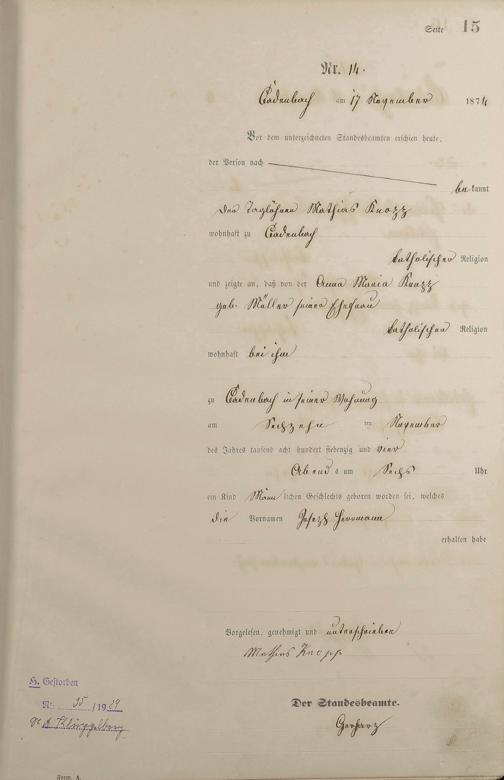 Seite 15
Nr. 14.
Cadenbach am 17 November 1874
Vor dem unterzeichneten Standesbeamten erschien heute,
der Person nach
bekannt
der Taglöhner Mathias Knopp
wohnhaft zu Cadenbach
katholischer Religion
und zeigte an, daß von der Anna Maria Knopp
geb. Müller seiner Ehefrau
katholischer Religion
wohnhaft bei ihm
zu Cadenbach in seiner Wohnung
am Sechzehn ten November
des Jahres tausend acht hundert siebenzig und vier
Abends um Sechs Uhr
ein Kind Männlichen Geschlechts geboren worden sei, welches
die Vornamen Joseph Hermann
erhalten habe
Vorgelesen, genehmigt und unterschrieben
Mathias Knopp
Der Standesbeamte.
Gerharz
H. Gestorben
Nr. 35 /1939
Form. A.